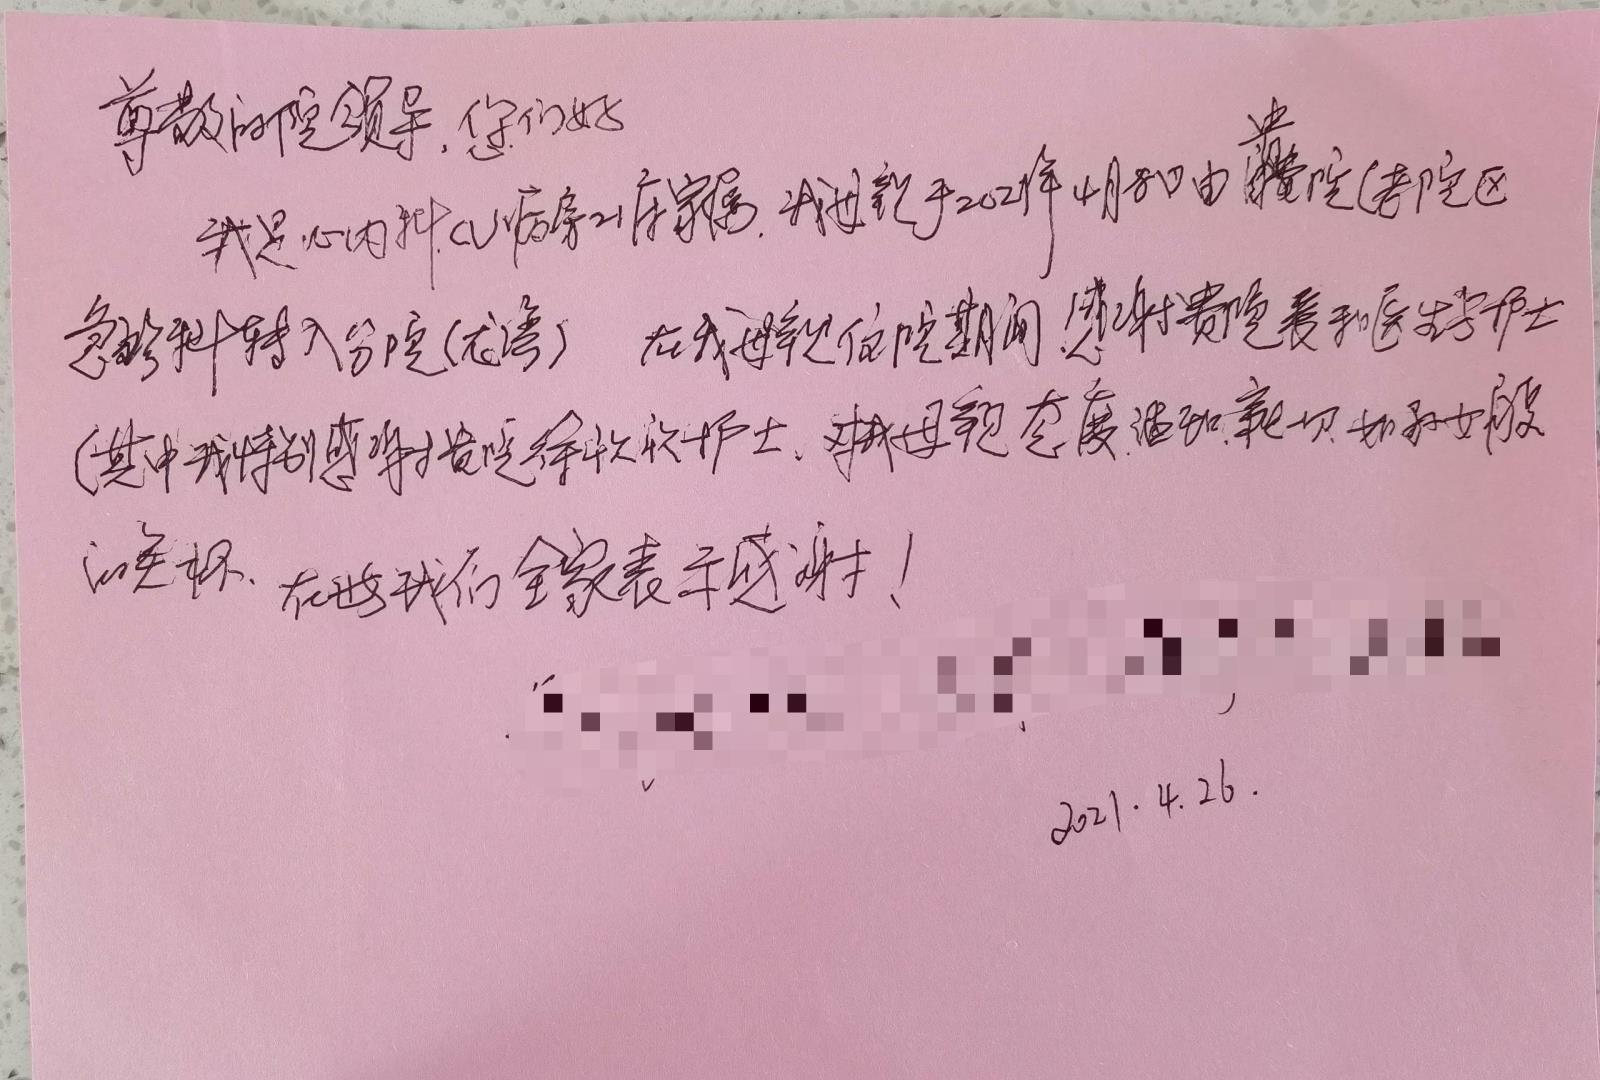 尊敬的院领导，您们好
我是心内科CU病房21床家属，我母亲于2021年4月8日由贵院(老院区
急诊科转入分院(尤湾) 在我母亲住院期间感谢贵院医生护士
(其中我特别感谢贵院徐欢欢护士、对我母亲态度温和亲切如孙女般
的关怀、在此我们全家表示感谢！
2021.4.26.